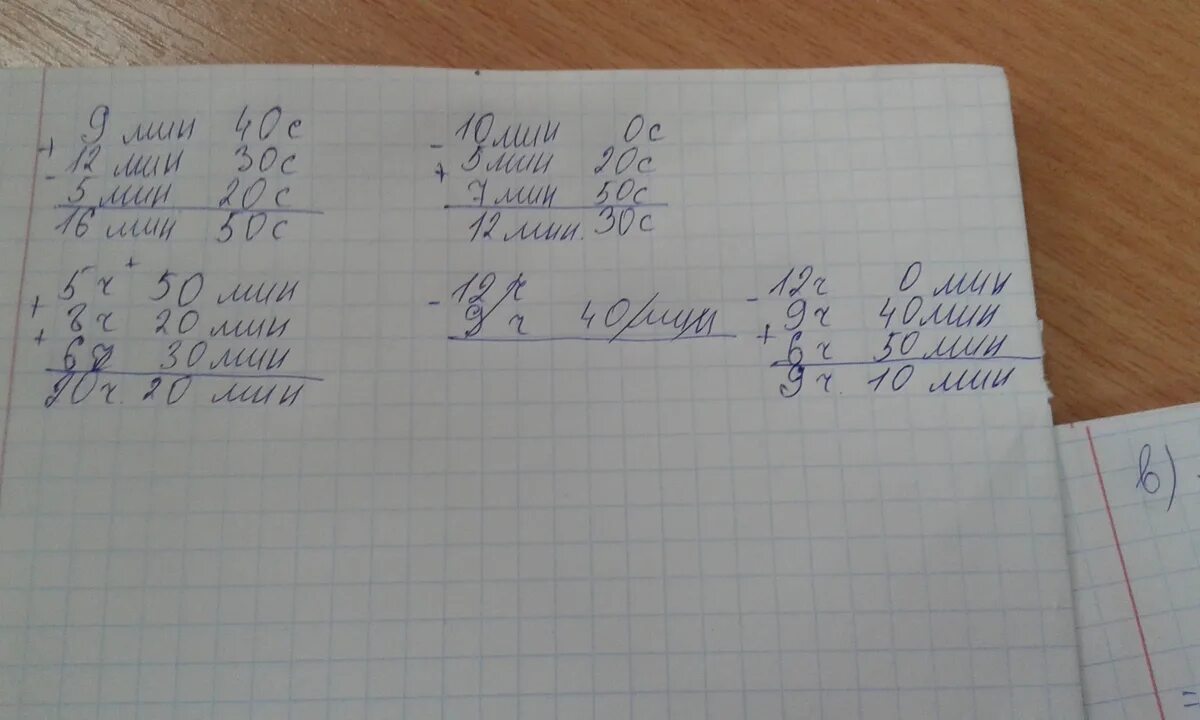 9 мин 40с
+ 12 мин 30с
- 5 мин 20с
16 мин 50с
10мин 0с
- 5мин 20с
+ 7 мин 50с
12мин. 30с
5ч 50 мин
+ 8ч 20 мин
+ 6ч 30мин
20ч. 20 мин
- 12ч
9 ч 40мин
- 12ч 0 мин
9ч 40мин
+ 6ч 50мин
9ч. 10 мин
в)
=